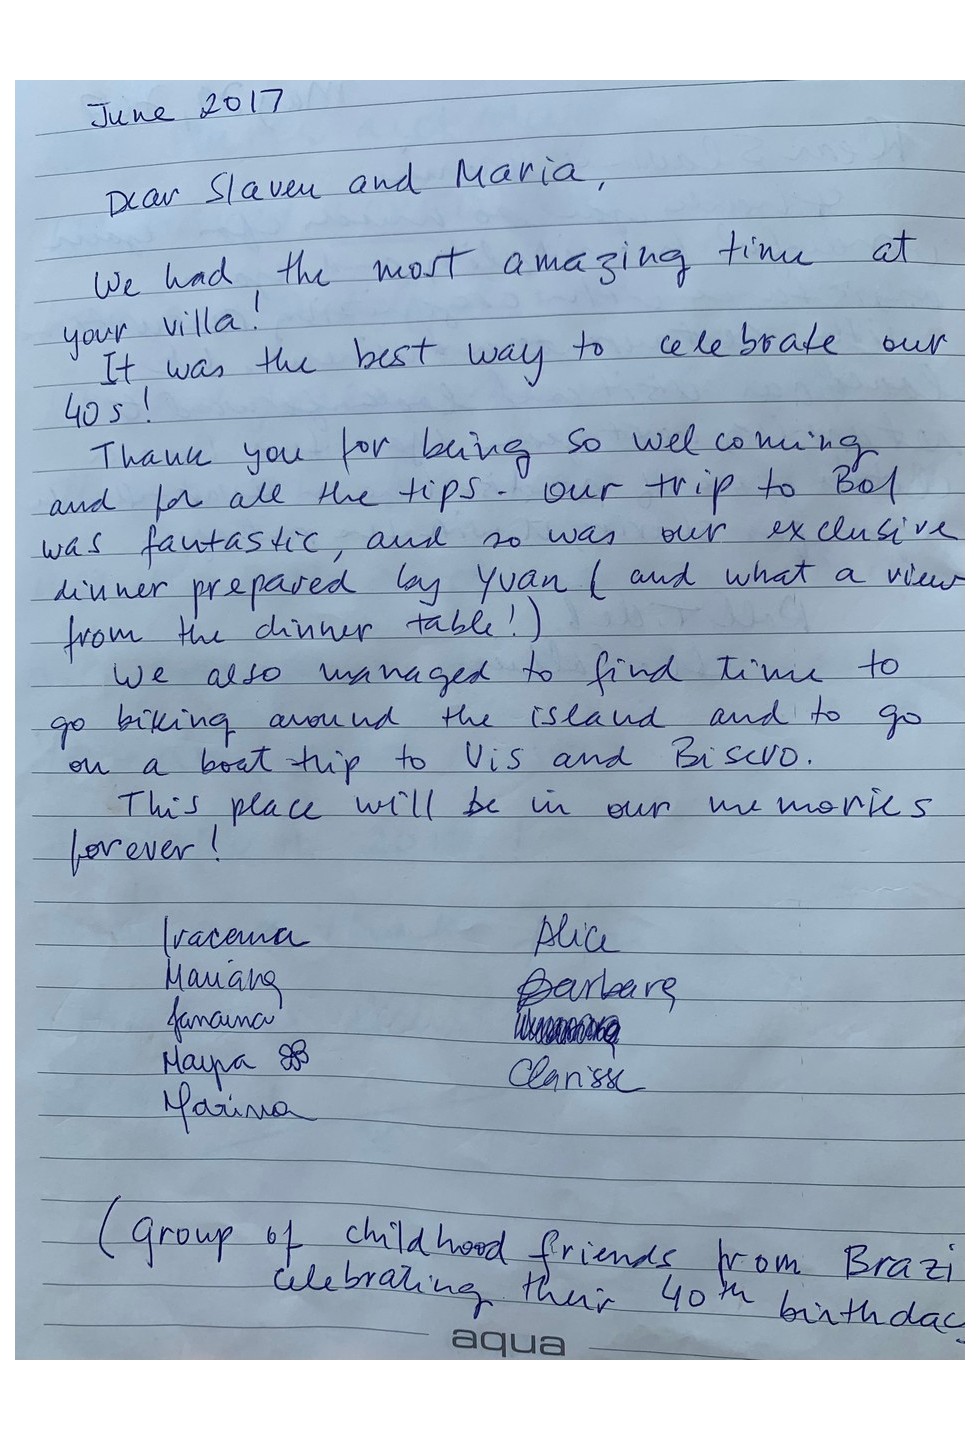 June 2017
Dear Slaven and Maria,
We had the most amazing time at
your villa!
It was the best way to celebrate our
40s!
Thank you for being so welcoming
and for all the tips - our trip to Bol
was fantastic, and so was our exclusive
dinner prepared by Yvan (and what a view
from the dinner table!)
We also managed to find time to
go biking around the island and to go
on a boat trip to Vis and Bisevo.
This place will be in our memories
forever!
Iracema Alice
Mariana Barbara
Janaina
Mayra Clarisse
Marina
(group of childhood friends from Brazi
celebrating their 40th birthday
aqua